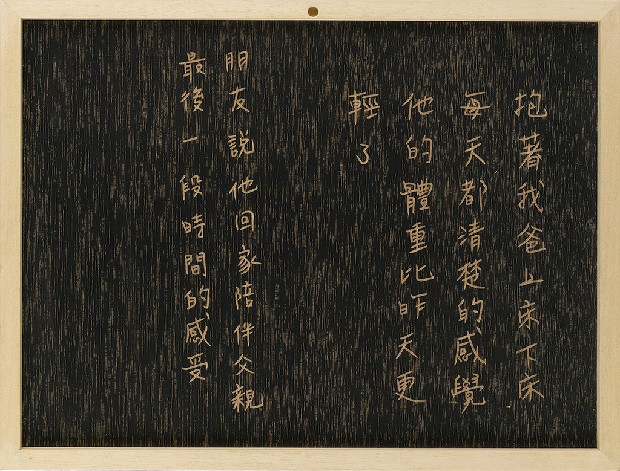 抱著我爸上床下床
每天都清楚的感覺
他的體重比昨天更
輕了
朋友說他回家陪伴父親
最後一段時間的感受